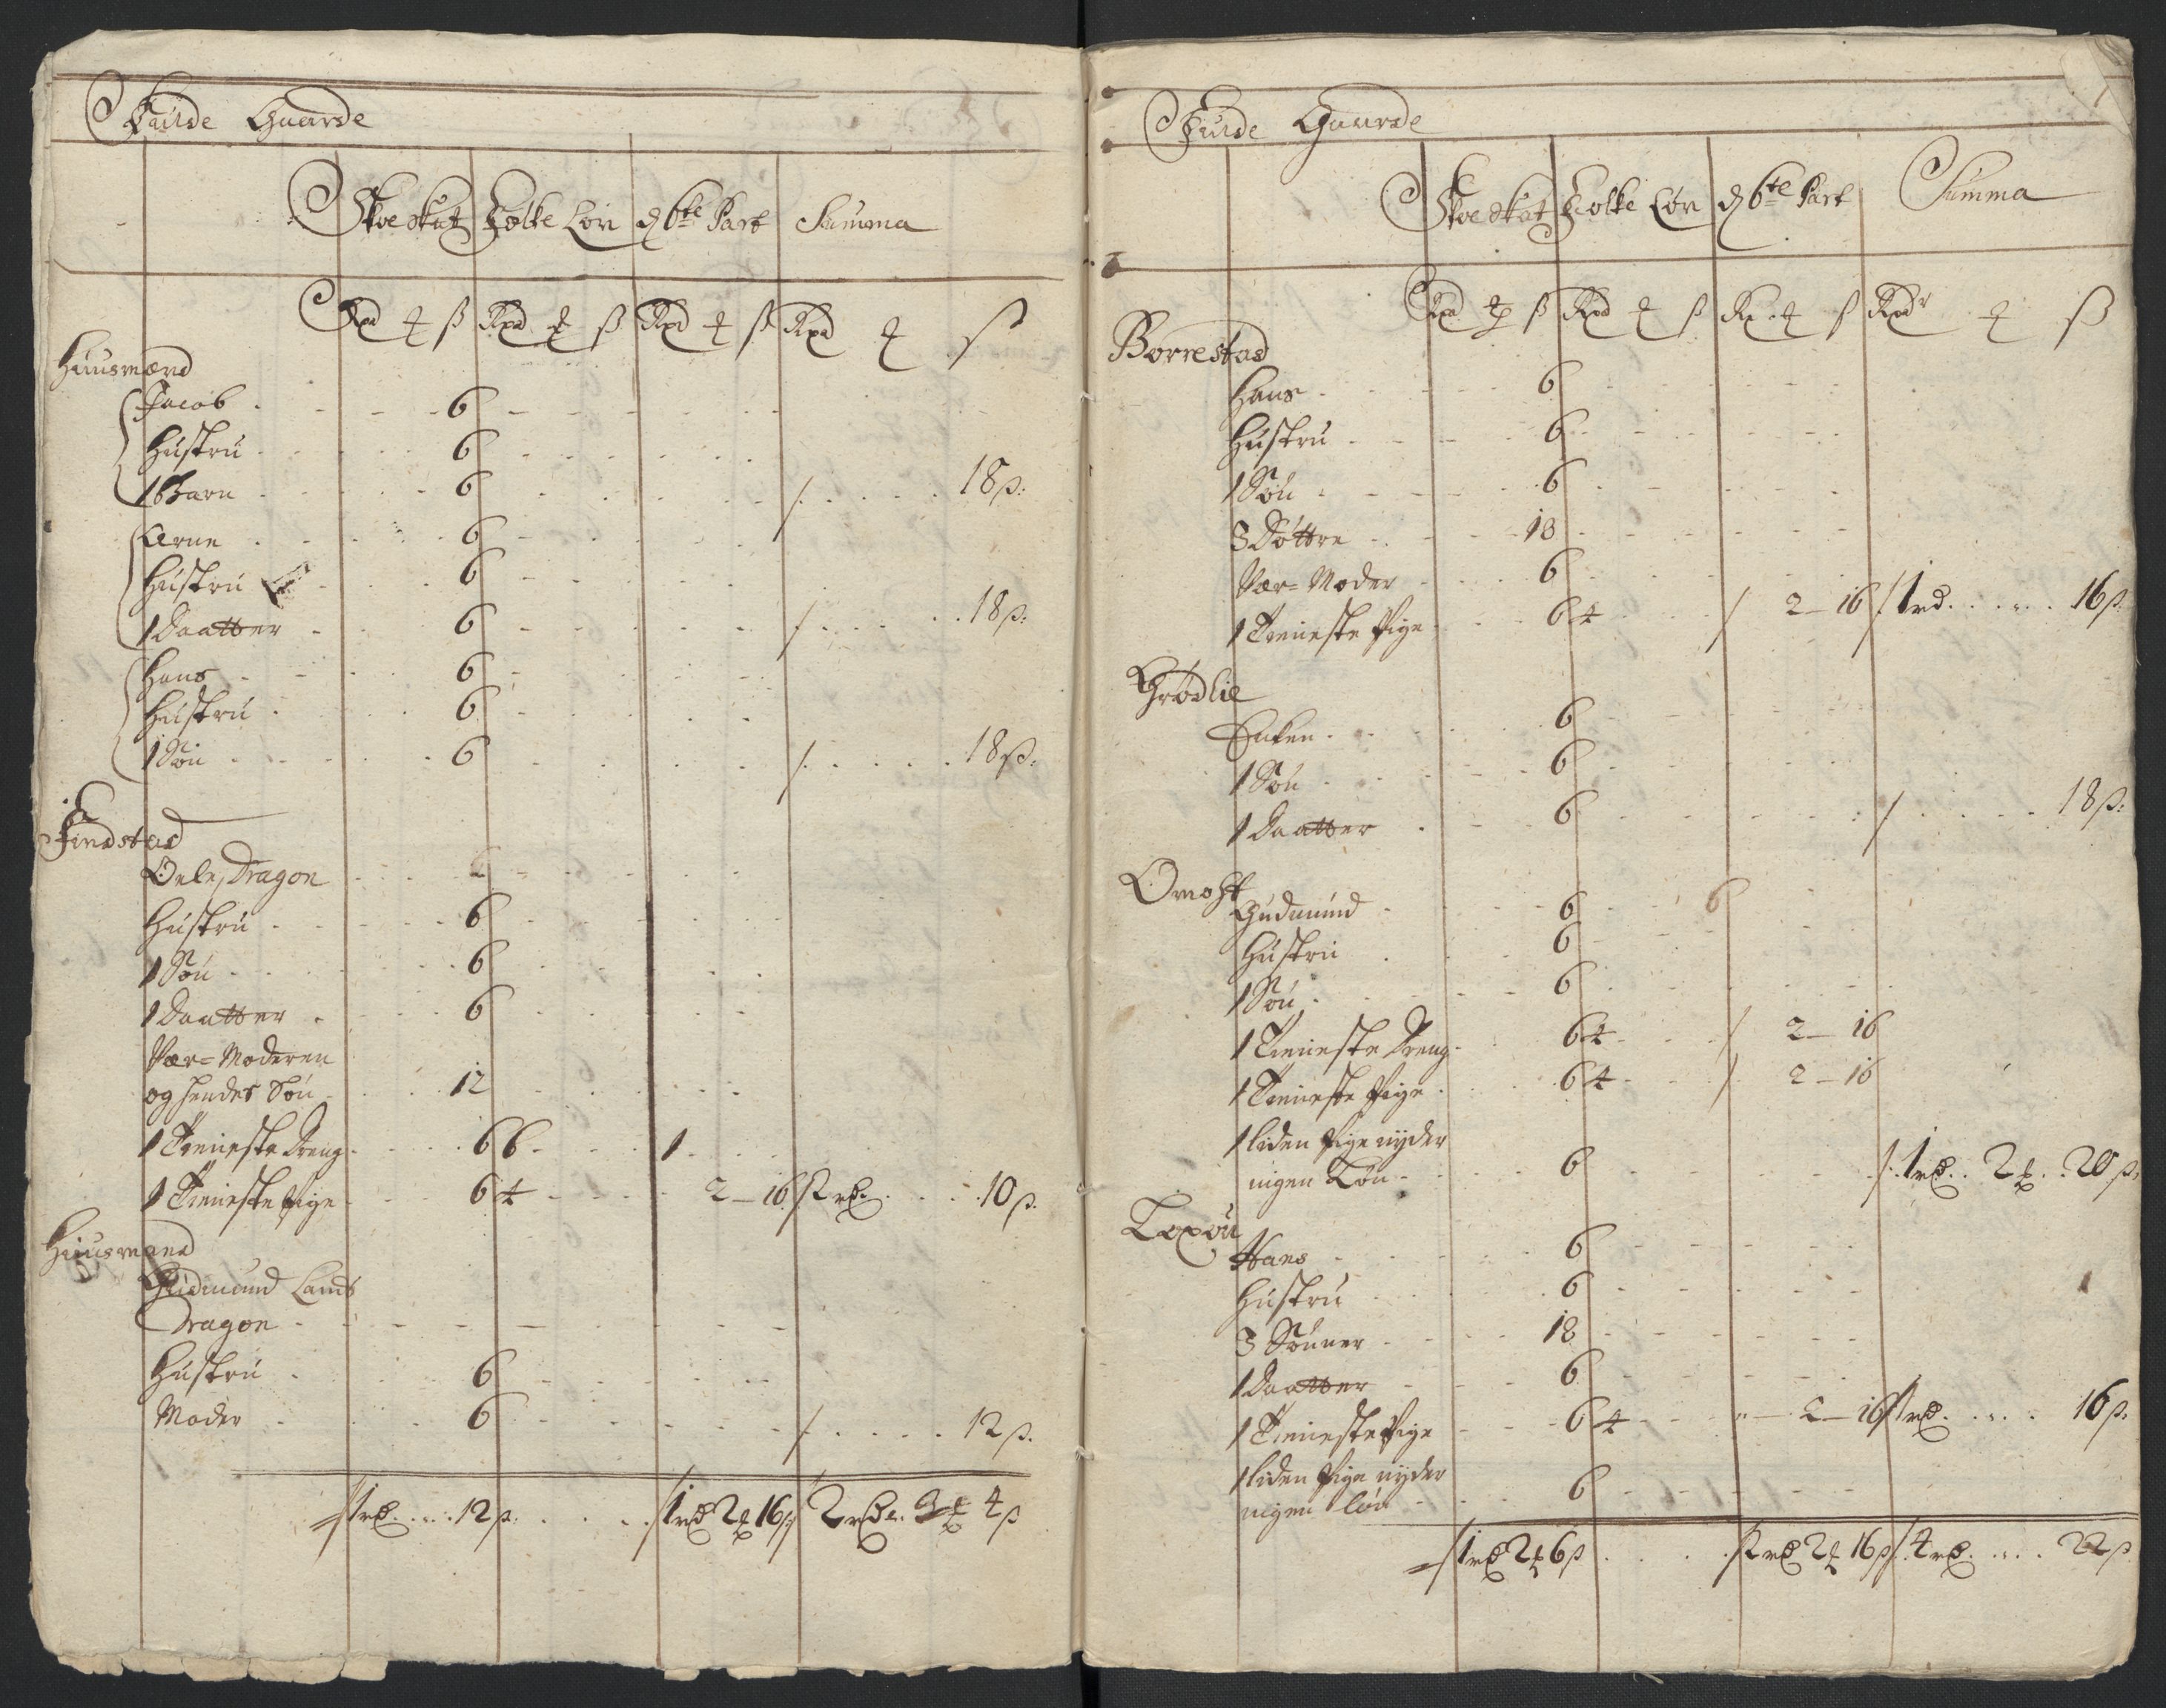 Fulde Gaarde
Skoe Skat Folke Løn d 6te Part Summa
Rxd ß Rxd ß Rxd ß Rxd ß
Huusmænd
Jacob 6
Hustru 6
1 Barn 6 18 ß:
Arne 6
Hustru 6
1 Daatter 6 18 ß:
Hans 6
Hustru 6
1 Søn 6 18 ß:
Findstad
Oele, Dragon
Hustru 6
1 Søn 6
1 Daatter 6
Vær=Moderen
og hendes Søn 12
1 Tieneste Dreng 6 6 1
1 Tieneste Pige 6 4 2 - 16 2 rd. 10 ß.
Huusmænd
Gudmund Land
Dragon
Hustru 6
Moder 6 12 ß.
1 rd. 12 ß. 1 rd 2 16 ß 2 rdr. 4 ß
Fulde Gaarde
Skoe Skat Folke Løn d 6te Part Summa
Rxd ß Rxd ß Rx ß Rxdr ß
Borrestad
Hans 6
Hustru 6
1 Søn 6
3 Døttre 18
Vær=Moder 6
1 Tieneste Pige 6 4 2 - 16 1 rd. 16 ß.
Grødlie
Enken 6
1 Søn 6
1 Daatter 6 18 ß:
Omoht
Gudmund 6 6
Hustru 6
1 Søn 6
1 Tieneste Dreng 6 4 2 - 16
1 Tieneste Pige 6 4 2 - 16
1 liden Pige nyder
ingen Løn 6 1 rd. 2 20 ß.
Toxøu
Hans 6
Hustru 6
3 Sønner 18
1 Daatter 6
1 Tieneste Pige 6 4 2 - 16 1 rd. 16 ß.
1 liden Pige nyder
ingen løn 6
1 rd 2 6 ß 2 rd 2 16 ß 4 rd. 22 ß